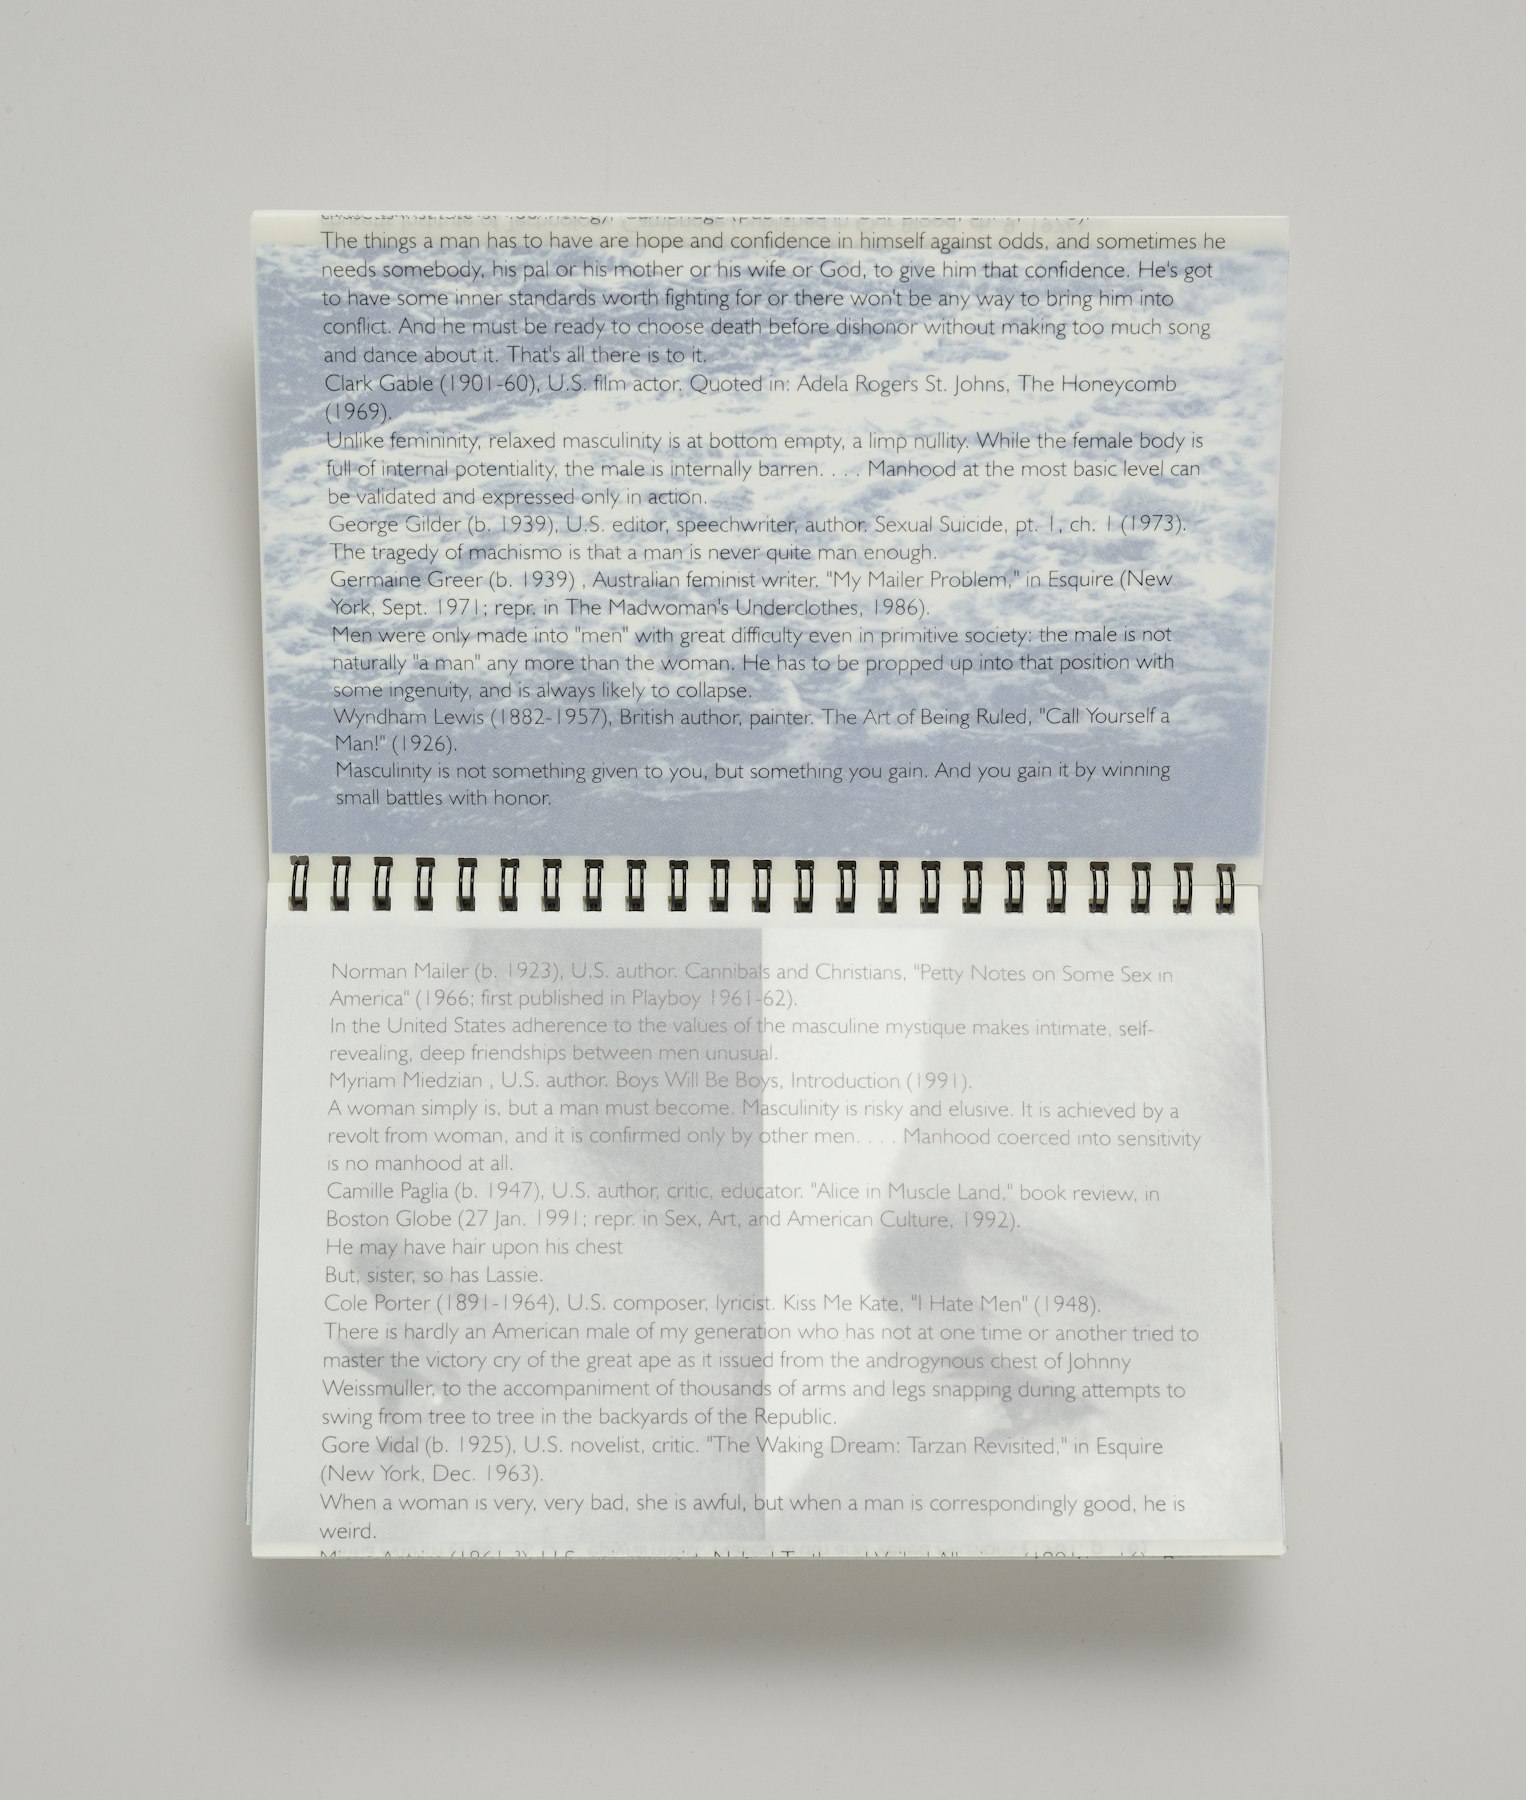 The things a man has to have are hope and confidence in himself against odds, and sometimes he
needs somebody, his pal or his mother or his wife or God, to give him that confidence. He's got
to have some inner standards worth fighting for or there won't be any way to bring him into
conflict. And he must be ready to choose death before dishonor without making too much song
and dance about it. That's all there is to it.
Clark Gable (1901-60), U.S. film actor. Quoted in: Adela Rogers St. Johns, The Honeycomb
(1969).
Unlike femininity, relaxed masculinity is at bottom empty, a limp nullity. While the female body is
full of internal potentiality, the male is internally barren. . . . Manhood at the most basic level can
be validated and expressed only in action.
George Gilder (b. 1939), U.S. editor, speechwriter, author. Sexual Suicide, pt. 1, ch. 1 (1973).
The tragedy of machismo is that a man is never quite man enough.
Germaine Greer (b. 1939) , Australian feminist writer. "My Mailer Problem," in Esquire (New
York, Sept. 1971; repr. in The Madwoman's Underclothes, 1986).
Men were only made into "men" with great difficulty even in primitive society: the male is not
naturally "a man" any more than the woman. He has to be propped up into that position with
some ingenuity, and is always likely to collapse.
Wyndham Lewis (1882-1957), British author, painter. The Art of Being Ruled, "Call Yourself a
Man!" (1926).
Masculinity is not something given to you, but something you gain. And you gain it by winning
small battles with honor.
Norman Mailer (b. 1923), U.S. author. Cannibals and Christians, "Petty Notes on Some Sex in
America" (1966; first published in Playboy 1961-62).
In the United States adherence to the values of the masculine mystique makes intimate, self-
revealing, deep friendships between men unusual.
Myriam Miedzian , U.S. author. Boys Will Be Boys, Introduction (1991).
A woman simply is, but a man must become. Masculinity is risky and elusive. It is achieved by a
revolt from woman, and it is confirmed only by other men. . . . Manhood coerced into sensitivity
is no manhood at all.
Camille Paglia (b. 1947), U.S. author, critic, educator. "Alice in Muscle Land," book review, in
Boston Globe (27 Jan. 1991; repr. in Sex, Art, and American Culture, 1992).
He may have hair upon his chest
But, sister, so has Lassie.
Cole Porter (1891-1964), U.S. composer, lyricist. Kiss Me Kate, "I Hate Men" (1948).
There is hardly an American male of my generation who has not at one time or another tried to
master the victory cry of the great ape as it issued from the androgynous chest of Johnny
Weissmuller, to the accompaniment of thousands of arms and legs snapping during attempts to
swing from tree to tree in the backyards of the Republic.
Gore Vidal (b. 1925), U.S. novelist, critic. "The Waking Dream: Tarzan Revisited," in Esquire
(New York, Dec. 1963).
When a woman is very, very bad, she is awful, but when a man is correspondingly good, he is
weird.